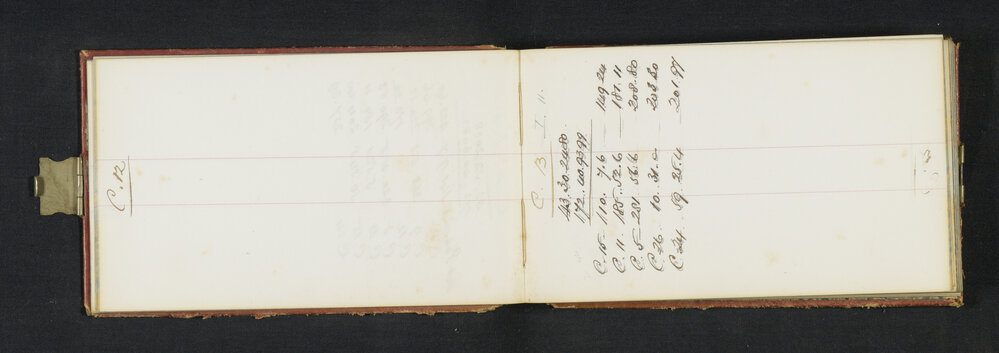 C. 12
C. 13 I. 11.
43. 30. 24.80.
172. 40. 93 99
C. 15 110. 7. 6 149 24
C. 11. 185. 52. 6 187. 11
C. 5 281 56. 6 208. 80
C. 26. 10. 31. 0 203 20
C. 24. 59. 25. 4 201. 97